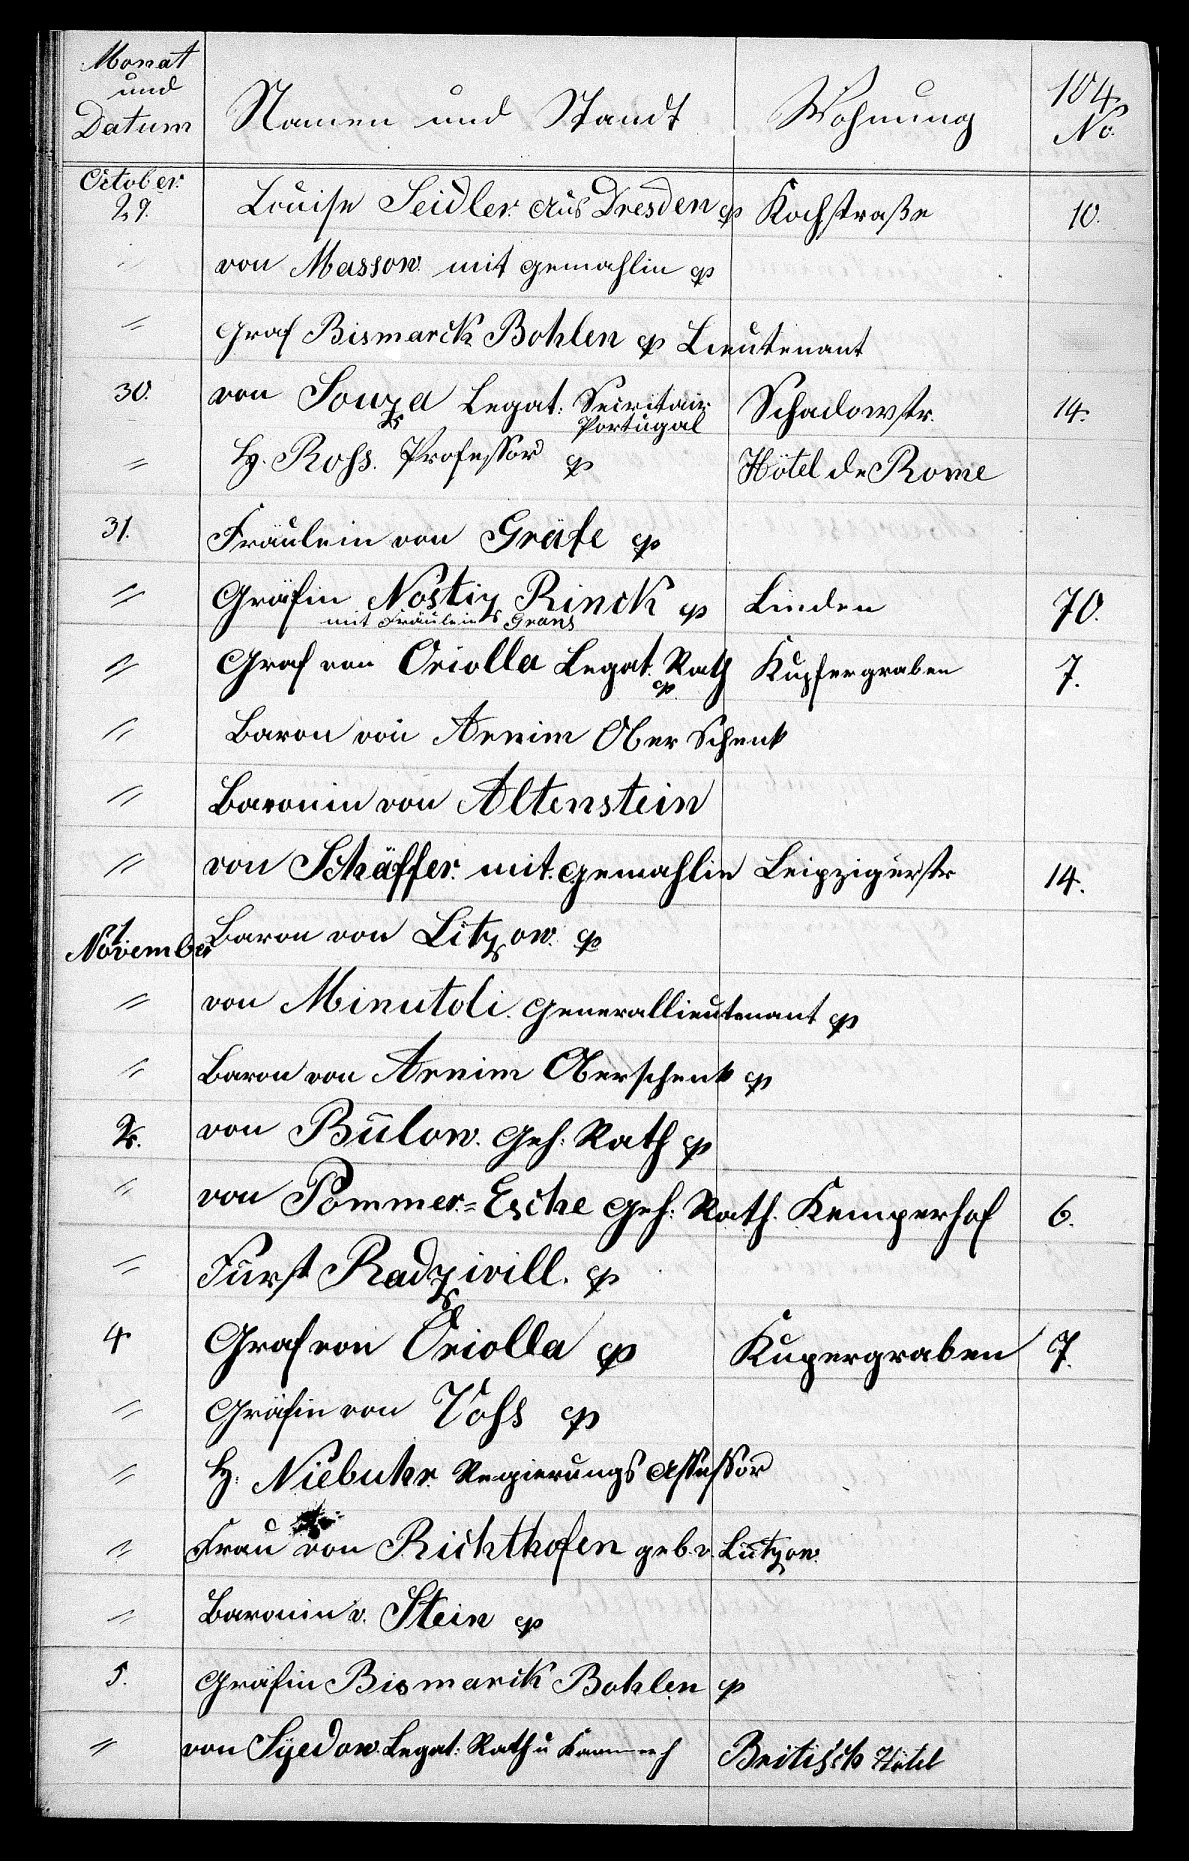 Monat und Datum Namen und Standt Wohnung 104. No.
October. 29. Louise Seidler aus Dresden cp Kochstraße 10.
von Massow. mit gemahlin cp
" Graf Bismarck Bohlen cp Lieutenant
30. von Souza Legat: Secritair Portugal Schadowstr. 14.
" H. Roß. Professor cp Hôtel de Rome
31. Fräulein von Gräfe cp
" Gräfin Nostiz Rinck cp Linden 70.
mit Fräulein Grans
" Graf von Oriolla Legat. Rath cp. Kupfergraben 7.
" Baron von Arnim Ober Schenk
" Baronin von Altenstein
" von Schäffer. mit gemahlin Leipzigerstr 14.
1 November Baron von Litzow. cp
" von Minutoli. Generallieutenant cp
" Baron von Arnim Oberschenk cp
2. von Bülow. Geh: Rath cp
" von Pommer-Esche Geh: Rath. Kemperhof 6.
" Fürst Radziwill. cp
4 Graf von Oriolla cp Kupergraben 7.
" Gräfin von Voß cp
" H. Niebuhr Regierungs Assessor
" Frau von Richthofen geb. v. Lützow.
" Baronin v. Stein cp
5. Gräfin Bismarck Bohlen cp
" von Syedow. Legat: Rath u Kammerh Britisch Hôtel